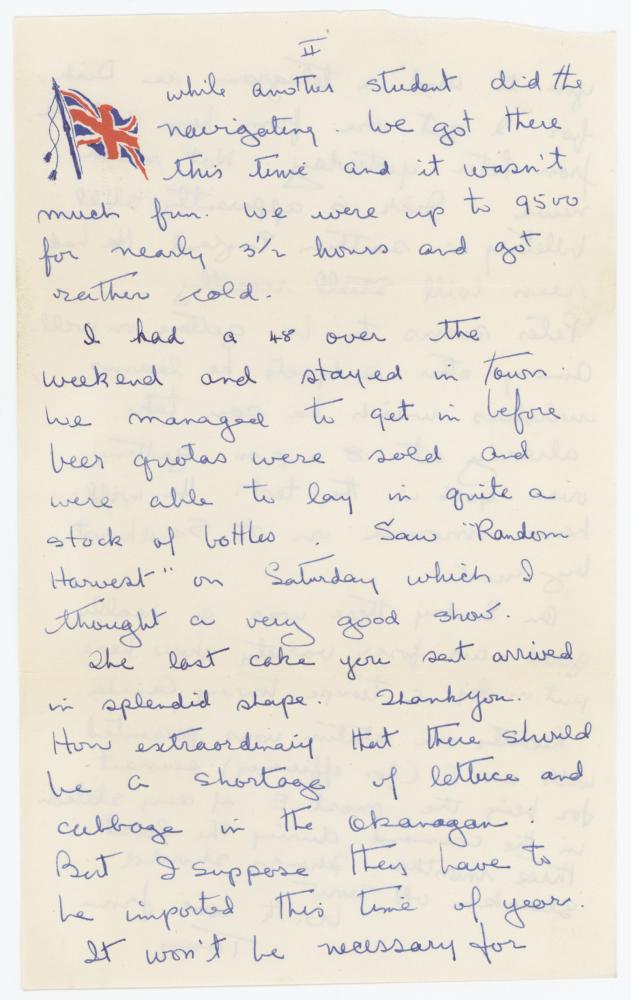 II
while another student did the
navigating. We got there
this time and it wasn't
much fun. We were up to 9500
for nearly 3 1/2 hours and got
rather cold.
I had a 48 over the
weekend and stayed in town.
We managed to get in before
beer quotas were sold and
were able to lay in quite a
stock of bottles. Saw "Random
Harvest" on Saturday which I
thought a very good show.
The last cake you sent arrived
in splendid shape. Thankyou.
How extraordinary that there should
be a shortage of lettuce and
cabbage in the Okanagan.
But I suppose they have to
be imported this time of year.
It won't be necessary for